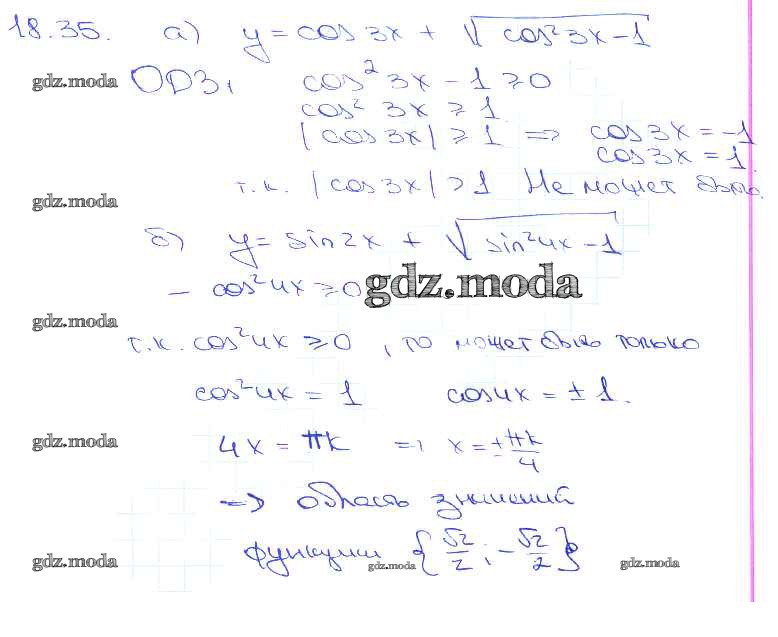 18.35. а) y = cos 3x + √(cos²3x - 1)
gdz.moda ОДЗ, cos² 3x - 1 ≥ 0
cos² 3x ≥ 1
|cos 3x| ≥ 1 => cos 3x = -1
cos 3x = 1.
т.к. |cos 3x| > 1 Не может быть.
gdz.moda
б) y = sin 2x + √(sin²4x - 1)
- cos²4x ≥ 0 gdz.moda
gdz.moda
т.к. cos²4x ≥ 0, то может быть только
cos²4x = 1 cos 4x = ±1.
gdz.moda 4x = πk => x = ± πk/4
=> область значений
gdz.moda функции {√2/2; -√2/2} gdz.moda gdz.moda